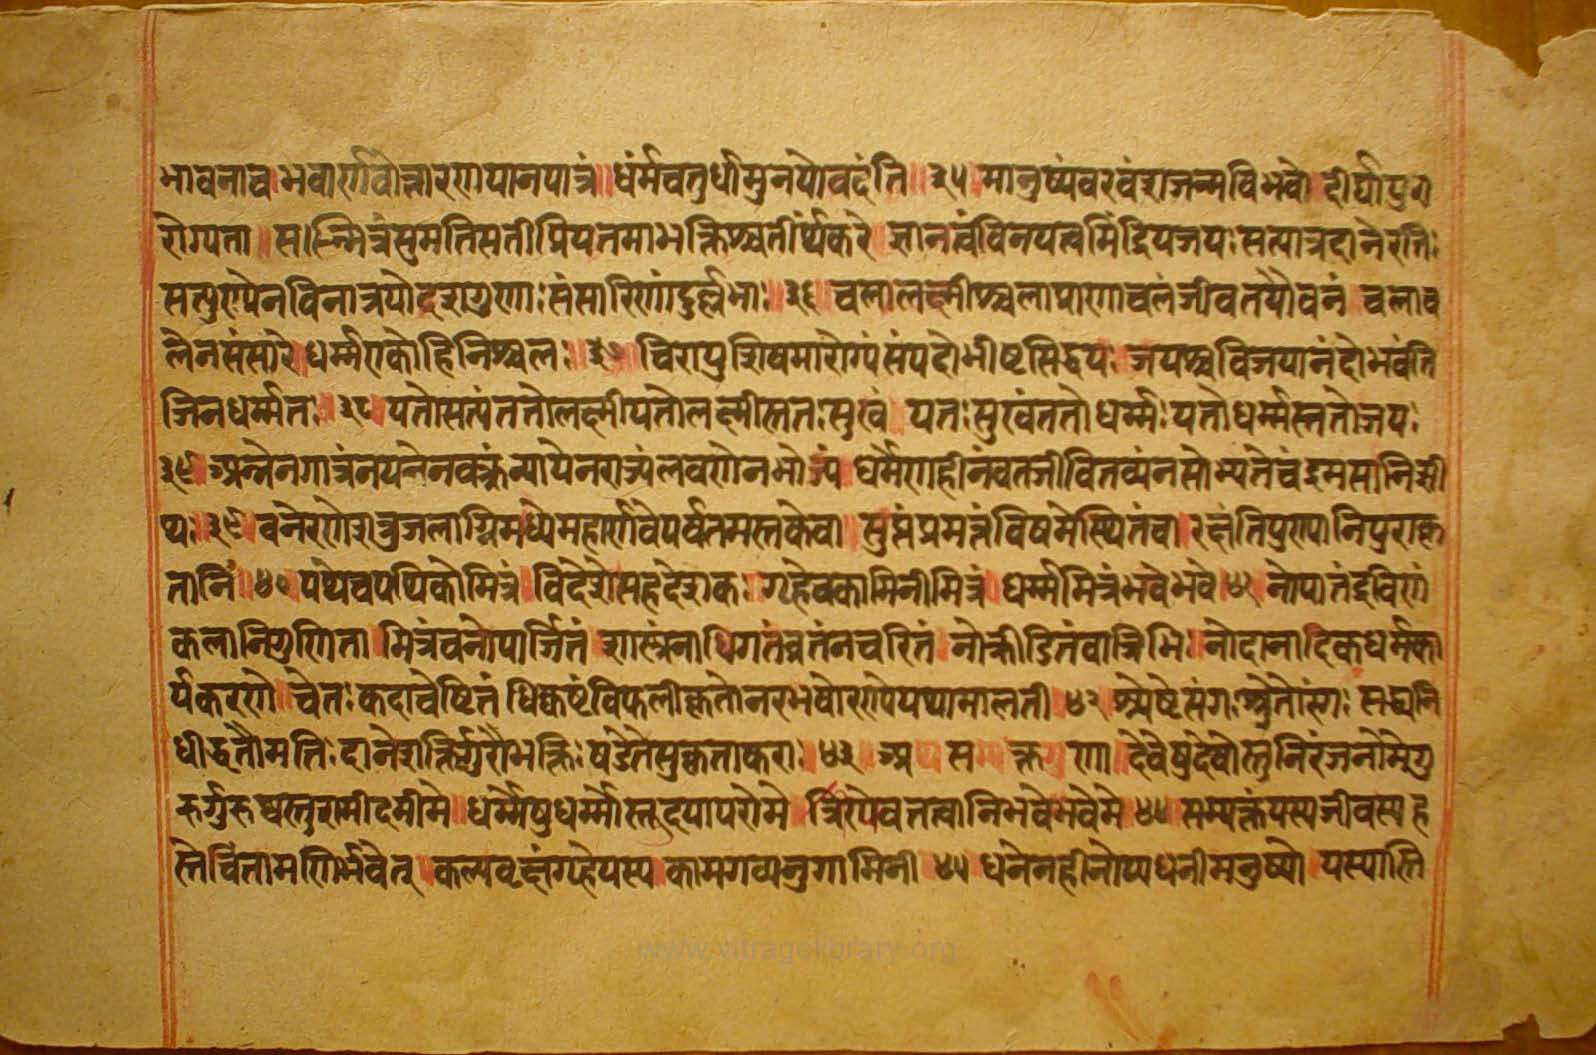 भावनाच।भवार्णवोत्तारणयानपात्रं॥धंर्मचतुर्धामुनयोवदंति॥३५॥मानुष्यंवरवंशजन्मविभवो।दीर्घायुरा
रोग्यता॥सन्मित्रंसुमतिसतीप्रियतमाभक्तिश्चतीर्थंकरे॥ज्ञानत्वंविनयत्वमिंद्रियजयःसत्पात्रदानेरतिः
सत्पुण्येनविनात्रयोदशगुणाःसंसारिणांदुर्ल्लभाः॥३६॥चलालक्ष्मीश्चलाप्राणाचलंजीवतयौवनं॥चलाच
लेनसंसारे।धर्म्मएकोहिनिश्चलः॥३७॥चिरायुशिषमारोग्यंसंपदोभीष्टसिद्धयः।जयश्चविजयानंदोभवंति
जिनधर्म्मतः॥३८॥यतोसत्यंततोलक्ष्मीयतोलक्ष्मीस्ततःसुखं॥यतःसुखंततोधर्म्मःयतोधर्म्मस्ततोजयः
३९॥अन्नेनगात्रंनयनेनवक्त्रंन्यायेनराज्यंलवणेनभोज्यं॥धर्मेणहीनंवतजीवितव्यं
३९॥वनेरणेशत्रुजलाग्निमध्येमहार्णवेपर्वतमस्तकेवा॥सुप्तंप्रमत्तंविषमेस्थितंवा।रक्षंतिपुण्यानिपुराकृ
तानि॥४०॥पथेचपथिकोमित्रं।विदेशेसहदेशकः।गृहेचकामिनीमित्रं।धर्म्ममित्रंभवेभवे।४१॥नोपातंद्रविणं
कलानिगुणिता।मित्रंचनोपार्जितं॥शास्त्रंनाधिगतंव्रतंनचरितं।नोक्रीडितंवाग्निभिः।नोदानादिकधर्मका
र्यकरणे॥चेतःकदाचेष्टितं।धिक्कष्टंविफलीकृतोनरभवो
धीर्द्धृतौमतिःदानेशक्तिर्गुरौभक्तिःषडेतेसुकृताकराः॥४३॥अथसम्यक्त्वगुणा॥देवेषुदेवोस्तुनिरंजनोमेगु
रुर्गुरुष्वस्तुशमीदमीमे॥धर्म्मेषुधर्म्मोस्तुदयापरोमे।त्रिण्येवतत्वानिभवेभवेमे॥४४॥सम्यक्त्वंयस्यजीवस्यह
स्तेचिंतामणिर्भवेत्।कल्पवृक्षंगृहेयस्यकामगव्यनुगामिनी॥४५॥धनेनहीनोप्यधनीमनुष्यो।यस्यास्ति